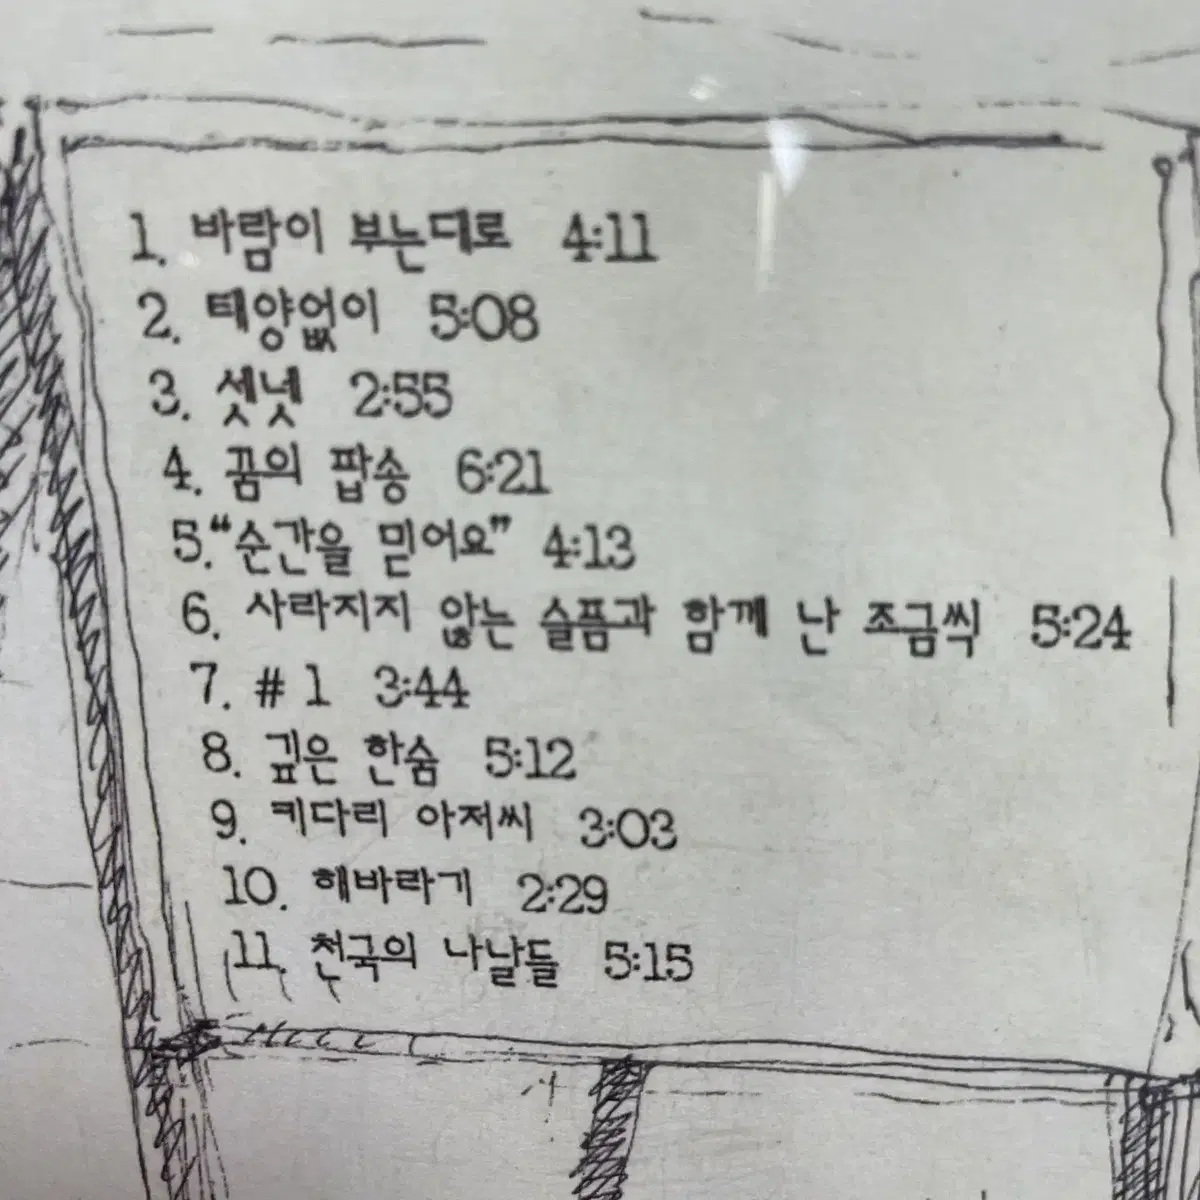 1. 바람이 부는대로 4:11
2. 태양없이 5:08
3. 셋넷 2:55
4. 꿈의 팝송 6:21
5. “순간을 믿어요” 4:13
6. 사라지지 않는 슬픔과 함께 난 조금씩 5:24
7. # 1 3:44
8. 깊은 한숨 5:12
9. 키다리 아저씨 3:03
10. 해바라기 2:29
11. 천국의 나날들 5:15